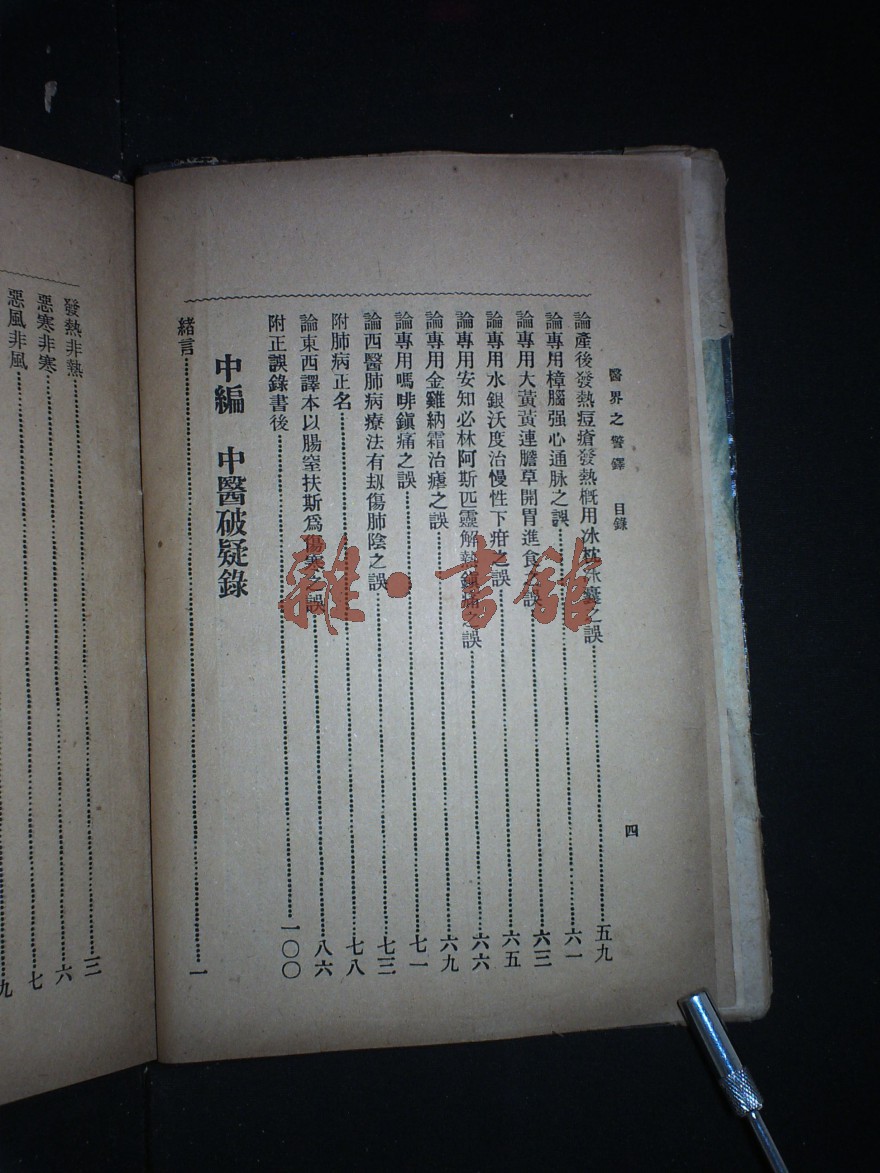 醫界之警鐸　目錄
四
論產後發熱痘瘡發熱概用冰枕冰囊之誤……五九
論專用樟腦强心通脉之誤……六一
論專用大黃黃連膽草開胃進食之誤……六三
論專用水銀沃度治慢性下疳之誤……六五
論專用安知必林阿斯匹靈解熱鎮痛之誤……六六
論專用金雞納霜治瘧之誤……六九
論專用嗎啡鎮痛之誤……七一
論西醫肺病療法有刼傷肺陰之誤……七三
附肺病正名……七八
論東西譯本以腸窒扶斯爲傷寒之誤……八六
附正誤錄書後……一〇〇
中編　中醫破疑錄
緒言……一
發熱非熱……三
惡寒非寒……六
惡風非風……七
九
雜·書館